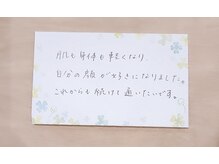 肌も身体も軽くなり
自分の顔が好きになりました。
これからも続けて通いたいです。